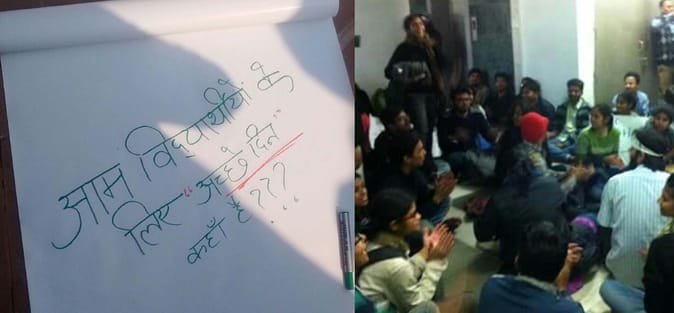 आम विद्यार्थीयों के
लिए "अच्छे दिन"
कहाँ है???